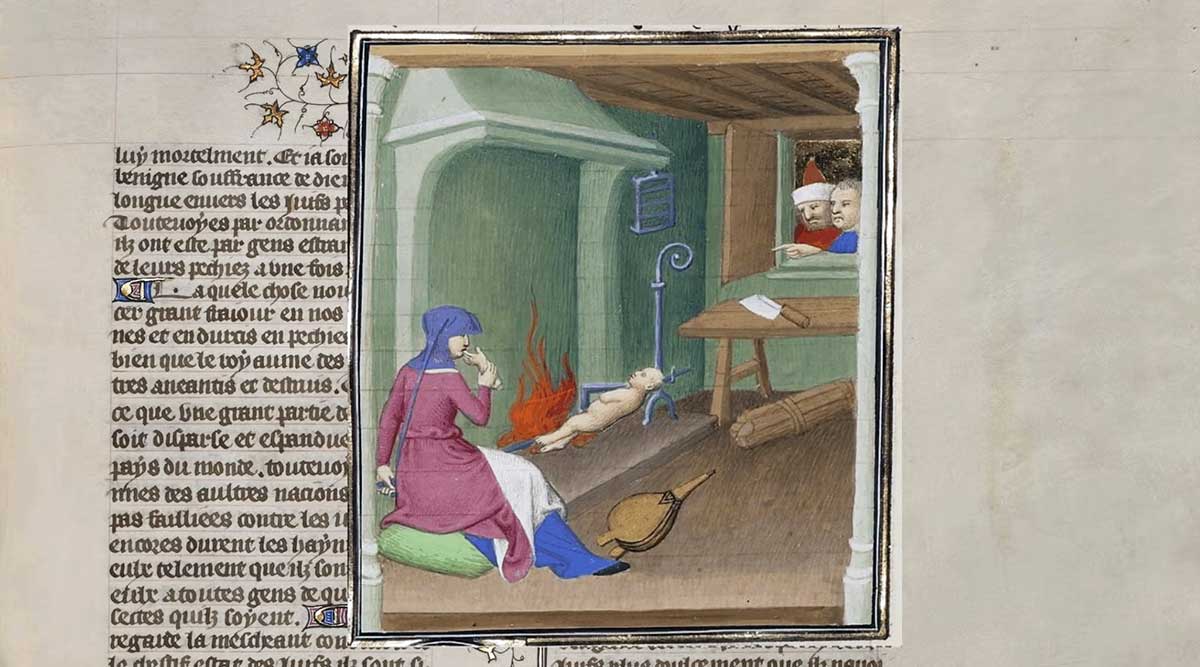 luy mortelment. Et ia soi
benigne souffrance de dieu
longue enuers les Juifs p
Toutesuoyes par ordonnan
ilz ont este par gens estran
de leurs pechiez a vne fois
a quele chose nou
cer grant staiour en nos
nes et endurcis en pechies
bien que le royaume des
tres aneantis et destruis.
ce que vne grant partie d
soit disparse et espandue
pays du monde. toutesuoi
mes des aultres nacions
pas faillies contre les i
encores durent les hayn
eulx telement que ilz son
et ilz a toutes gens de qu
sectes quilz soyent.
regarde la meschant con
le chetif estat des Juifs ilz sont si
Juifs plus doulcement que ilz